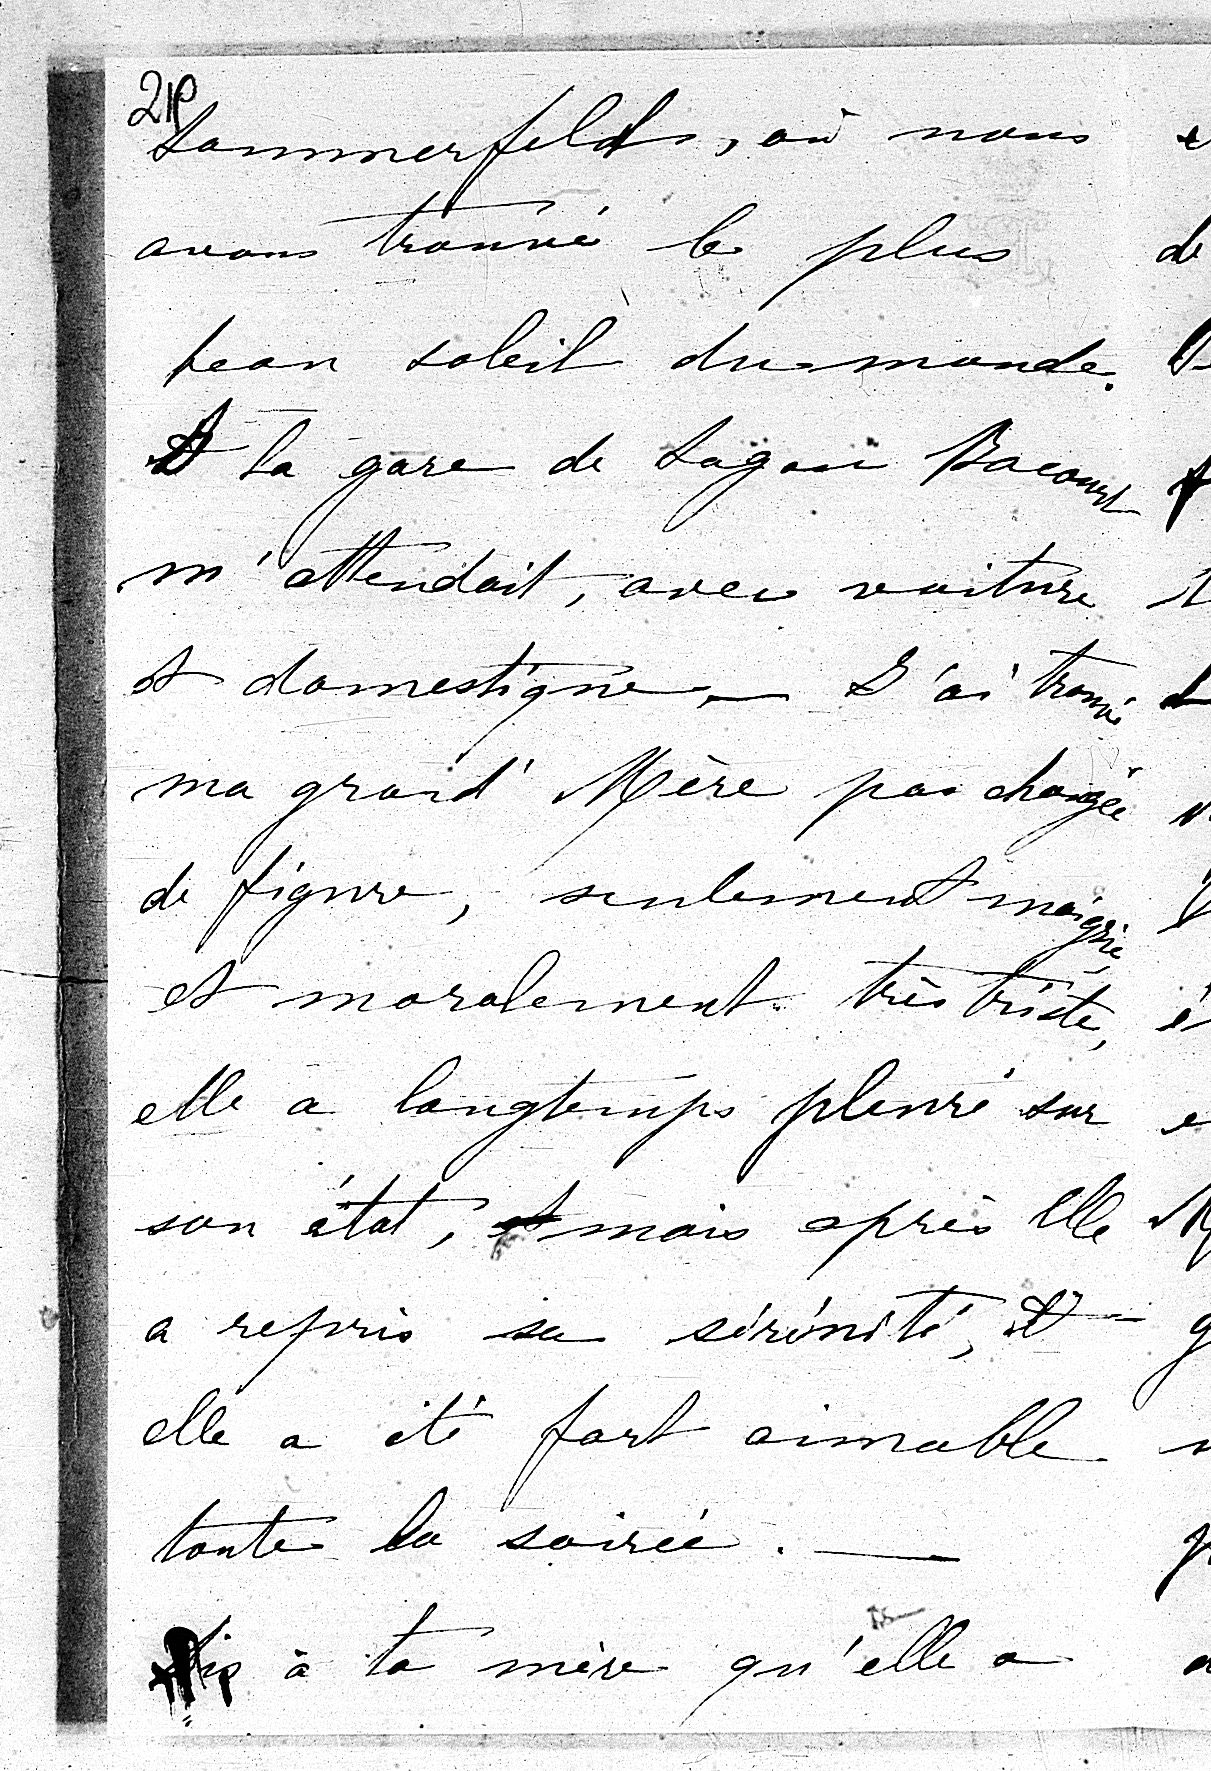 21
Sommerfeld, où nous
avons trouvé le plus
beau soleil du monde.
À la gare de Sagan Bacourt
m'attendait, avec voiture
et domestique, — J'ai trouvé
ma grand' Mère pas changée
de figure, seulement maigrie,
et moralement très triste,
elle a longtemps pleuré sur
son état, et mais après elle
a repris sa sérénité, et
elle a été fort aimable
toute la soirée. —
Dis à ta mère qu'elle a